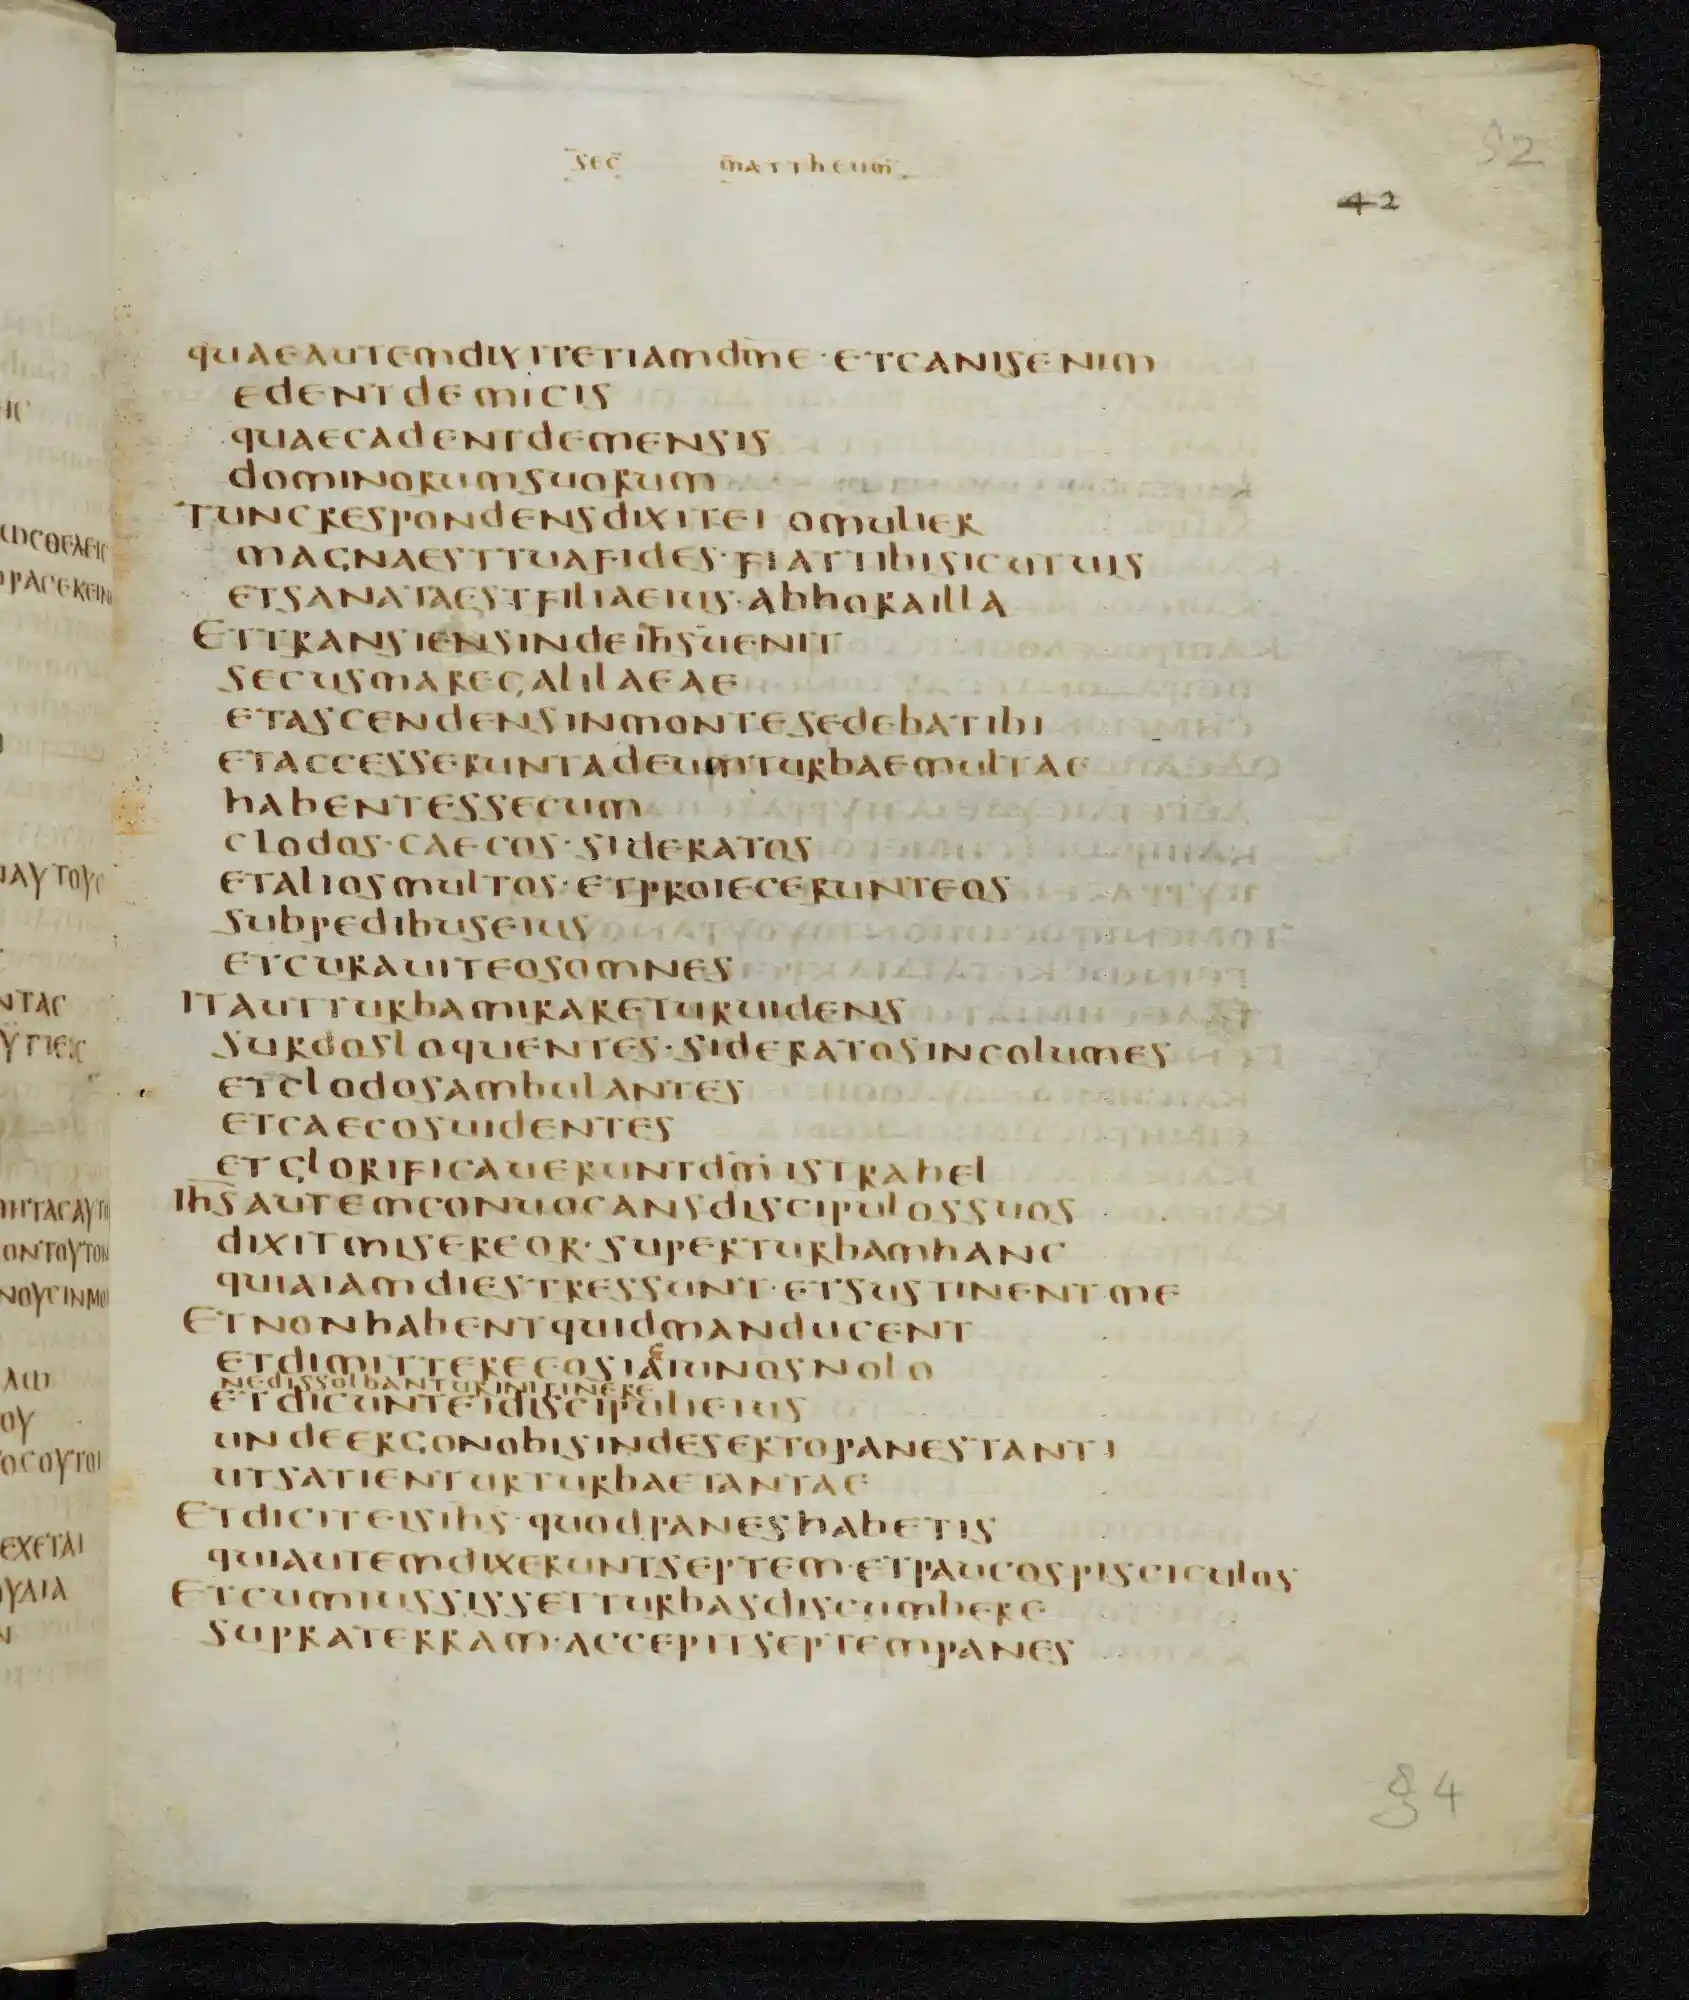 sec̅ m̅attheum̅
92
42
quaeautemdixitetiamdm̅e · etcanisenim
edentdemicis
quaecadentdemensis
dominorumsuorum
Tuncrespondensdixitei omulier
magnaesttuafides · fiattibisicutuis
etsanataestfiliaeius · abhorailla
Ettransiensindeih̅s̅uenit
secusmaregalilaeae
etascendensinmontesedebatibi
etaccesseruntadeumturbaemultae
habentessecum
clodos · caecos · sideratos
etaliosmultos · etproiecerunteos
subpedibuseius
etcurauiteosomnes
Itautturbamirareturuidens
surdosloquentes · sideratosincolumes
etclodosambulantes
etcaecosuidentes
etglorificaueruntdm̅ istrahel
Ih̅s̅autemconuocansdiscipulossuos
dixitmisereor · superturbamhanc
quiaiamdiestressunt · etsustinentme
Etnonhabentquidmanducent
e
etdimittereeosiaiunosnolo
nedissolbanturinitinere
etdicunteidiscipulieius
undeergonobisindesertopanestanti
utsatienturturbaetantae
Etdiciteisihs · quodpaneshabetis
quiautemdixeruntseptem · etpaucospisciculos
Etcumiussissetturbasdiscumbere
supraterram · accepitseptempanes
84
ντας
εχεται